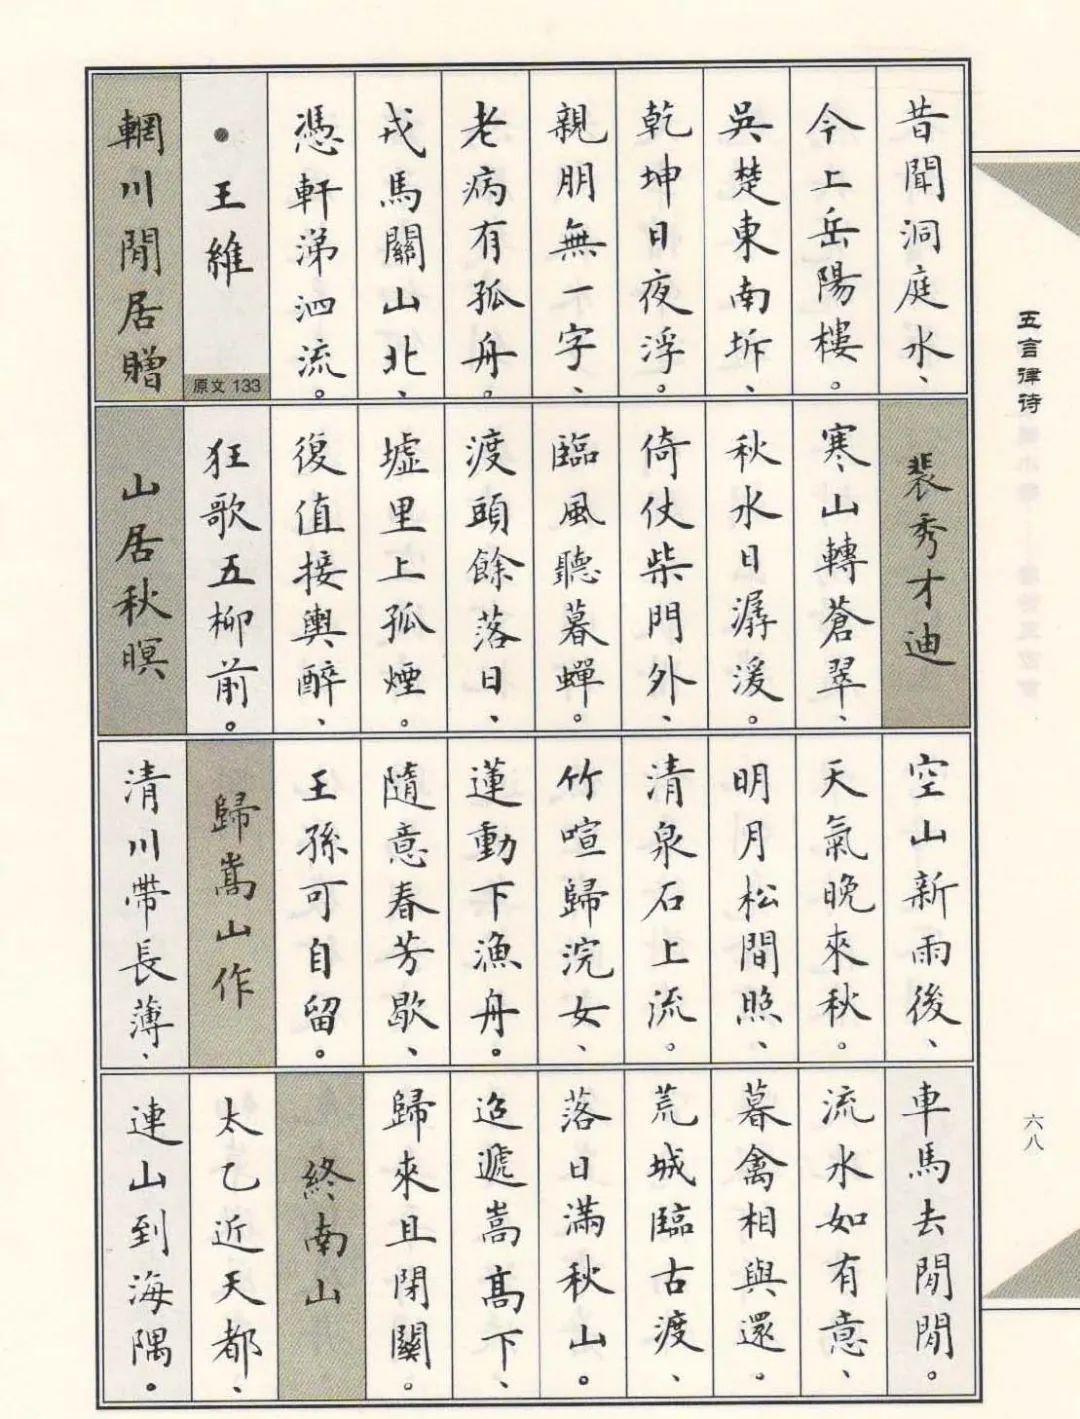 昔聞洞庭水、
今上岳陽樓。
吳楚東南坼、
乾坤日夜浮。
親朋無一字、
老病有孤舟。
戎馬關山北、
憑軒涕泗流。
•王維
原文 133
輞川閒居贈
裴秀才迪
寒山轉蒼翠、
秋水日潺湲。
倚仗柴門外、
臨風聽暮蟬。
渡頭餘落日、
墟里上孤煙。
復值接輿醉、
狂歌五柳前。
山居秋暝
空山新雨後、
天氣晚來秋。
明月松間照、
清泉石上流。
竹喧歸浣女、
蓮動下漁舟。
隨意春芳歇、
王孫可自留。
歸嵩山作
清川帶長薄、
車馬去閒閒。
流水如有意、
暮禽相與還。
荒城臨古渡、
落日滿秋山。
迢遞嵩高下、
歸來且閉關。
終南山
太乙近天都、
連山到海隅。
五言律诗
六八